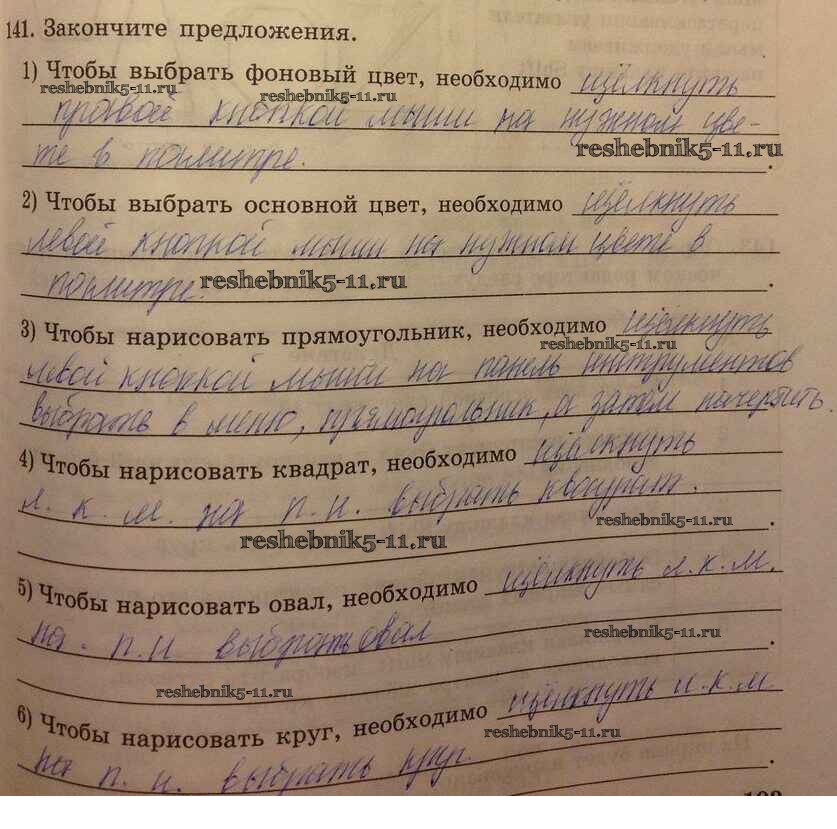 141. Закончите предложения.
1) Чтобы выбрать фоновый цвет, необходимо щёлкнуть
reshebnik5-11.ru reshebnik5-11.ru
правой кнопкой мыши на нужном цве-
те в палитре.
reshebnik5-11.ru
2) Чтобы выбрать основной цвет, необходимо щёлкнуть
левой кнопкой мыши на нужном цвете в
палитре.
reshebnik5-11.ru
3) Чтобы нарисовать прямоугольник, необходимо щёлкнуть
reshebnik5-11.ru
левой кнопкой мыши на панель инструментов
выбрать в меню, прямоугольник, а затем начертить.
4) Чтобы нарисовать квадрат, необходимо щёлкнуть
л. к. м. на п. и. выбрать квадрат.
reshebnik5-11.ru
reshebnik5-11.ru
5) Чтобы нарисовать овал, необходимо щёлкнуть л. к. м.
на. п. и выбрать овал
reshebnik5-11.ru
reshebnik5-11.ru
6) Чтобы нарисовать круг, необходимо щёлкнуть л. к. м
reshebnik5-11.ru
на п. и. выбрать круг.